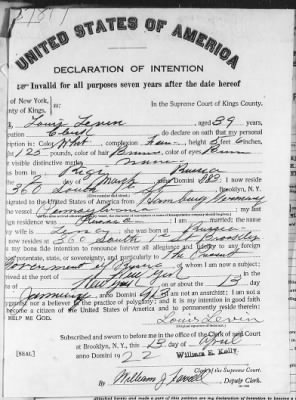 UNITED STATES OF AMERICA
DECLARATION OF INTENTION
Invalid for all purposes seven years after the date hereof
of New York,
ss:
In the Supreme Court of Kings County.
ty of Kings.
Louis Levin aged 39 years,
Clerk do declare on oath that my personal
scription is: Color White complexion height 5 feet inches,
ght 125 pounds, color of hair Brown color of eyes
er visible distinctive marks none
as born in Riga Russia
the day of March anno Domini I now reside
360 South St Brooklyn, N. Y.
igrated to the United States of America from Hamburg Germany
vessel Pennsylvania my last
ign residence was Russia I am married; the name
wife is she was born at Russia
resides at 360 South Brooklyn
my bona fide intention to renounce forever all allegiance and fidelity to any foreign
potentate, state, or sovereignty, and particularly to The Present
Government of Russia of whom I am now a subject:
rived at the port of New York in the
of New York on or about the 13 day
January anno Domini I am not an anarchist; I am not a
gamist nor a believer in the practice of polygamy; and it is my intention in good faith
become a citizen of the United States of America and to permanently reside therein:
HELP ME GOD.
Louis Levin
Subscribed and sworn to before me in the office of the Clerk of said Court
at Brooklyn, N. Y., this 13 day of April
[SEAL] anno Domini 1922
William E. Kelly
Clerk of the Supreme Court.
By William J. Deputy Clerk.